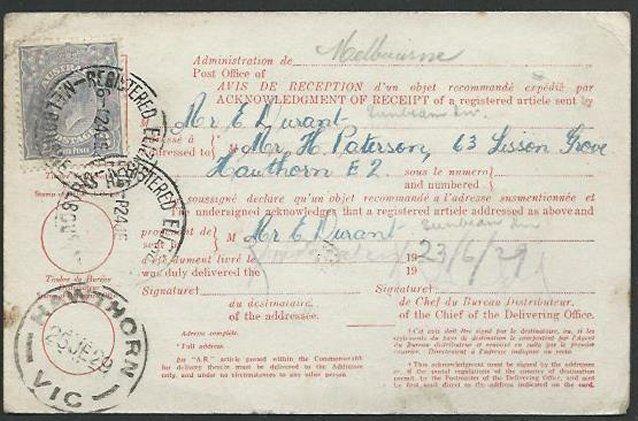 Administration de
Post Office of
Melbourne
AVIS DE RÉCEPTION d'un objet recommandé expédié par
ACKNOWLEDGMENT OF RECEIPT of a registered article sent by
Mr E Durant
Sunbeam
addressed to M Mr H. Paterson, 63 Lisson Grove
Hawthorn E2
sous le numero
and numbered
soussigné déclare qu'un objet recommandé a l'adresse susmentionnée et
The undersigned acknowledges that a registered article addressed as above and
M Mr E Durant
Sunbeam
dûment livré le
was duly delivered the
19
19
23/6/29
Signature†
Signature†
du destinataire.
of the addressee.
de Chef du Bureau Distributeur.
of the Chief of the Delivering Office.
Timbre du Bureau
Adresse complète.
* Full address.
An "A.R." article posted within the Commonwealth
for delivery therein must be delivered to the Addressee
only, and under no circumstances to any other person.
† Cet avis doit être signé par le destinataire, ou, si les
règlements du pays de destination le comportent par l'Agent
du Bureau distributeur, et renvoyé par le premier
courrier. Directement à l'adresse indiquée au recto.
† This advice must be signed by the addressee
or, if the postal regulations of the country of destination
permit, by the Postmaster of the Delivering Office, and must
be sent direct to the address indicated on the card.
REGISTERED ELIZ
MELBOURNE
POSTAGE
HAWTHORN
26 JE 29
VIC